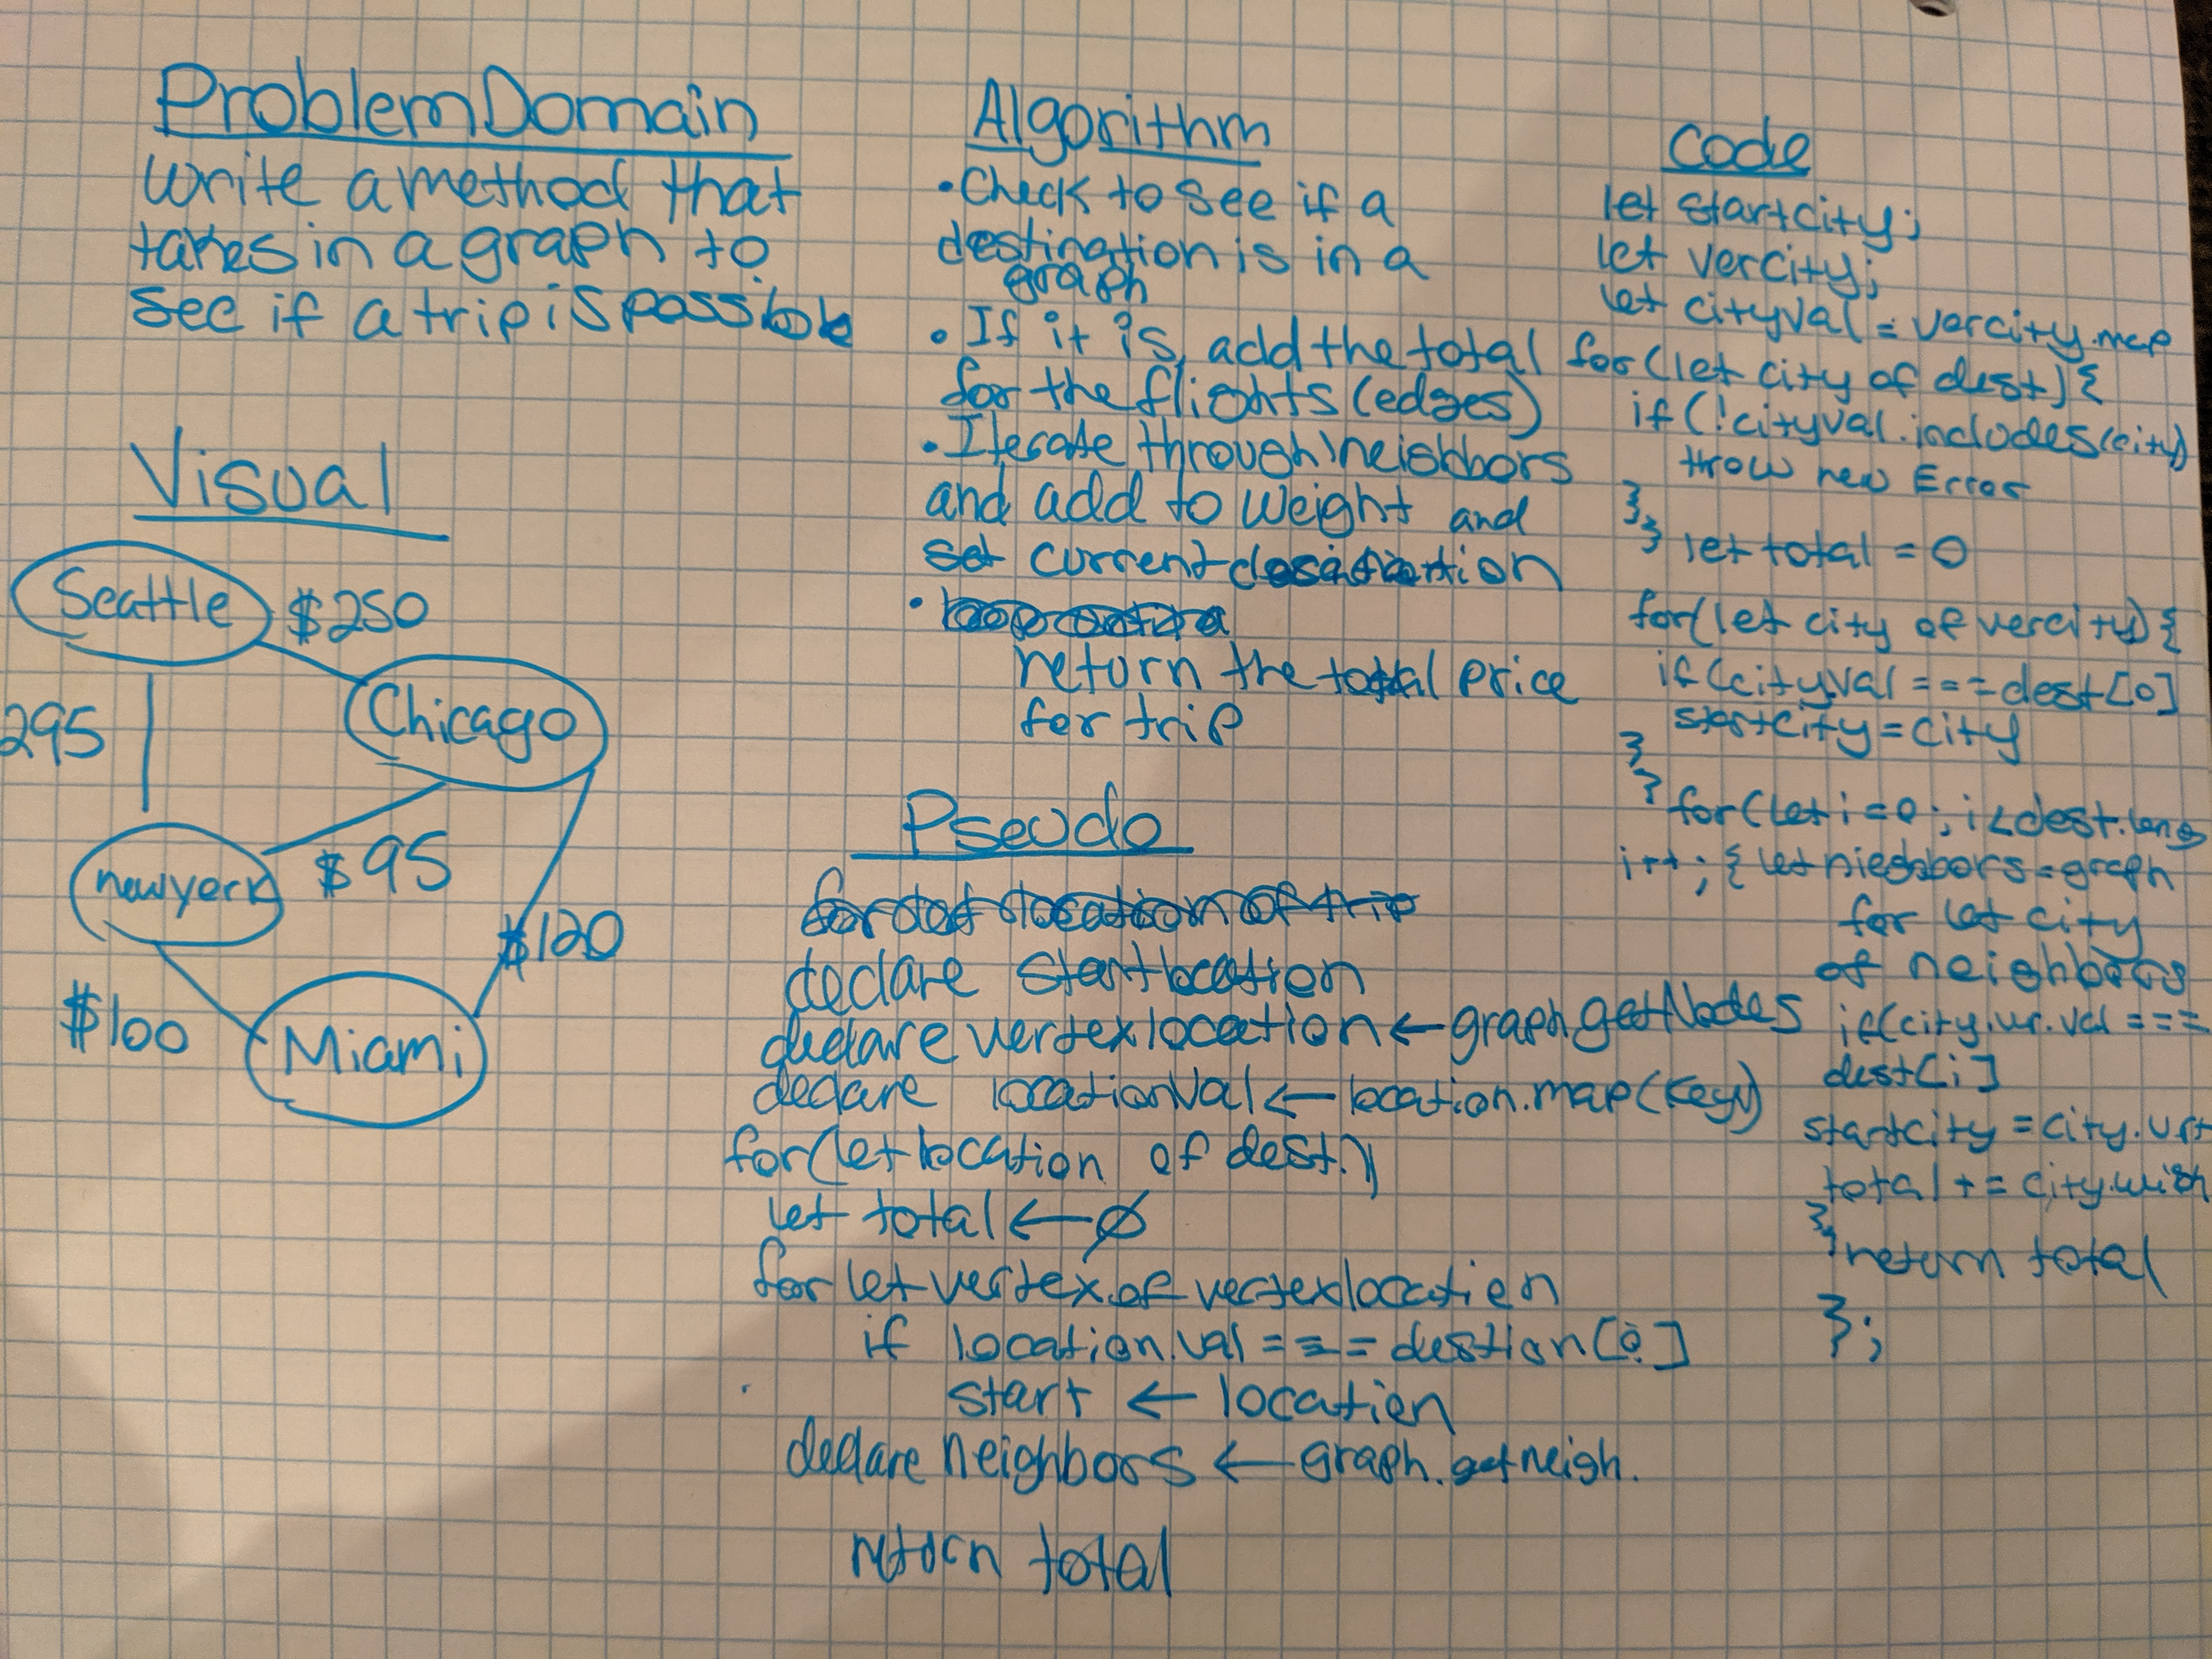 Problem Domain
write a method that
takes in a graph to
see if a trip is possible
Visual
Seattle $250
Chicago
295
newyork $95
$120
$100
Miami
Algorithm
• Check to see if a
destination is in a
graph
• If it is, add the total
for the flights (edges)
• Iterate through neighbors
and add to weight and
set current destination
•
return the total price
for trip
Pseudo
declare startlocation
declare vertexlocation ← graph.getNodes
declare locationVal ← location.map(key)
for(let location of dest.)
let total ← ∅
for let vertex of vertexlocation
if location.val === destion[0]
start ← location
declare neighbors ← graph.getneigh.
return total
Code
let startcity;
let vercity;
let cityval = vercity.map
for(let city of dest) {
if(!cityval.includes(city)
throw new Error
}
} let total = 0
for(let city of vercity) {
if(cityval === dest[0]
startcity = city
}
} for(let i = 0; i < dest.leng
i++; { let nieghbors = graph
for let city
of neighbors
if(city.vr.val ===
dest[i]
startcity = city.vrt
total += city.wigh
}
} return total
};